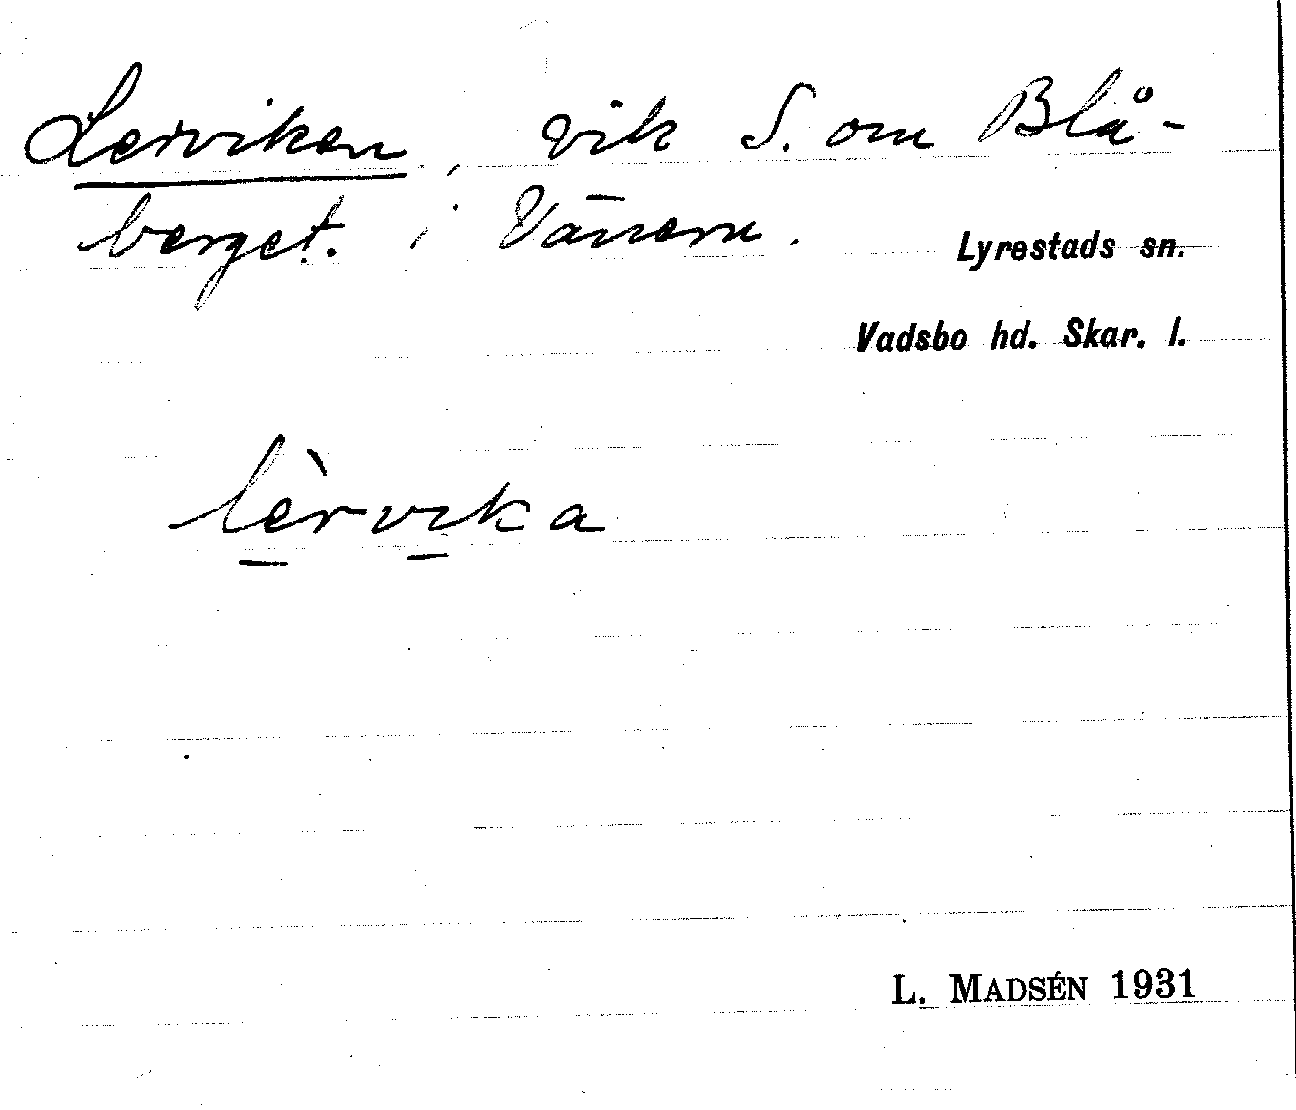 Lerviken, vik S. om Blå-
berget. i Vänern.
Lyrestads sn.
Vadsbo hd. Skar. l.
lèrvika
L. MADSÉN 1931